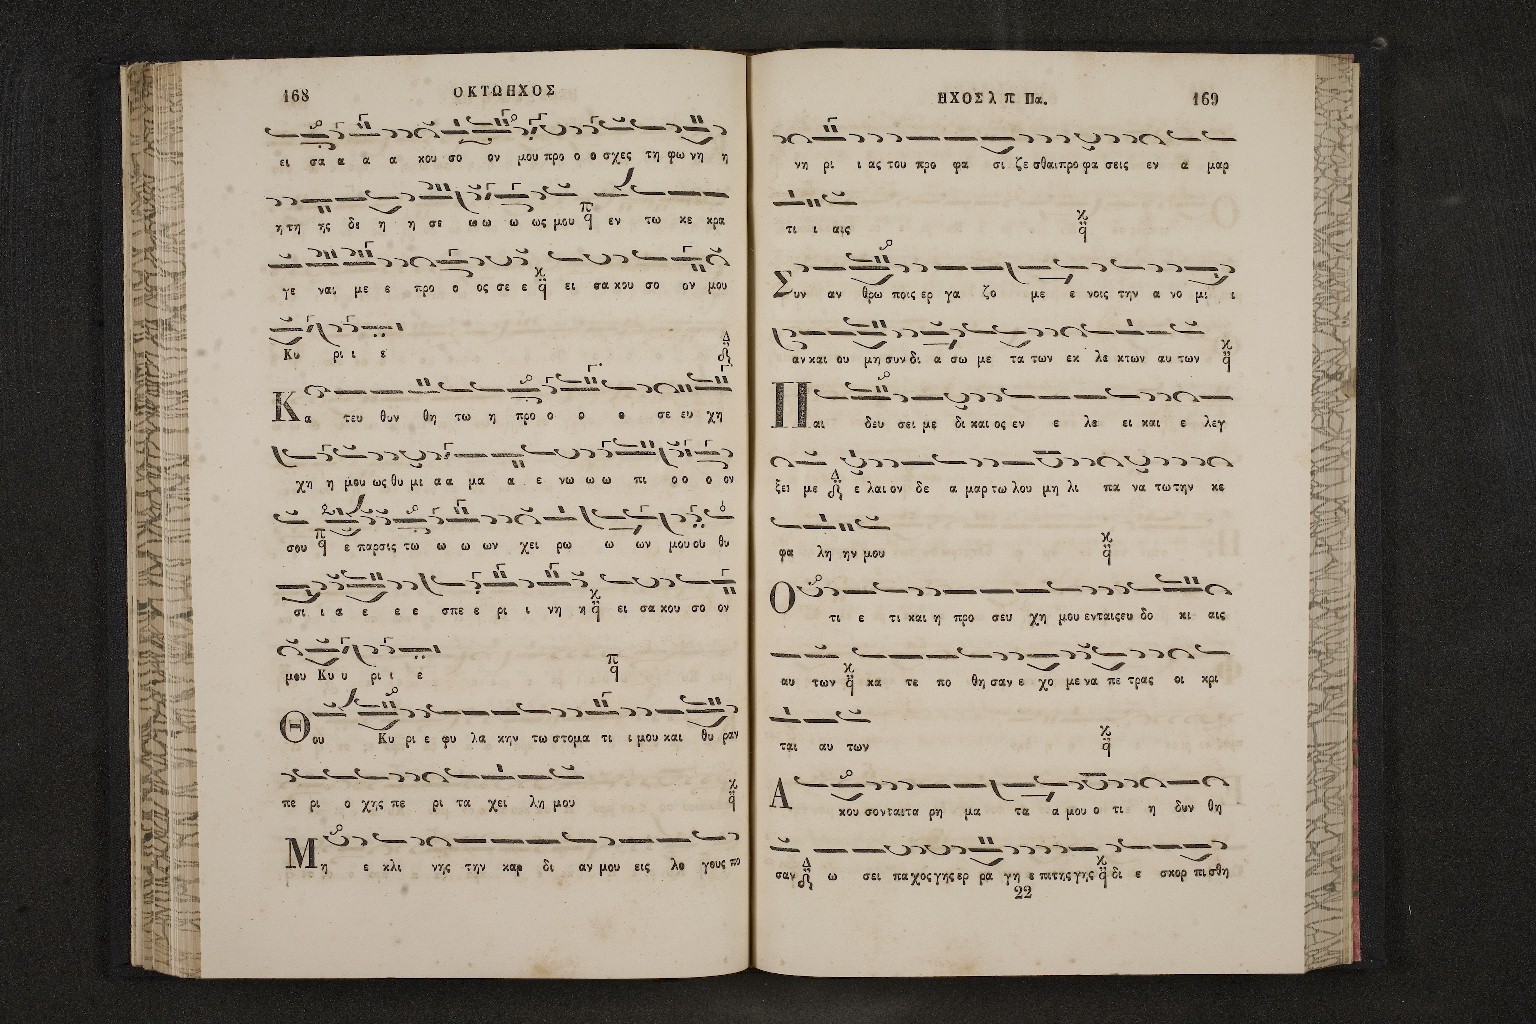 168
ΟΚΤΩΗΧΟΣ
ει σα α α α κου σο ον μου προ ο ο σχες τη φω νη η
η τη ης δε η η σε ω ω ω ως μου π q εν τω κε κρα
γε ναι με ε προ ο ος σε ε q ει σα κου σο ον μου
Κυ ρι ι ε
Κα τευ θυν θη τω η προ ο ο ο σε ευ χη
χη η μου ως θυ μι α α μα α ε νω ω ω πι ο ο ο ον
σου π q ε παρσις τω ω ω ων χει ρω ω ων μου ου θυ
σι ι α ε ε ε σπε ε ρι ι νη η q ει σα κου σο ον
μου Κυ υ ρι ι ε π q
Θου Κυ ρι ε φυ λα κην τω στομα τι ι μου και θυ ραν
πε ρι ο χης πε ρι τα χει λη μου q
Μη ε κλι νης την καρ δι αν μου εις λο γους πο
ΗΧΟΣ λ π Πα.
169
νη ρι ι ας του προ φα σι ζε σθαι προ φα σεις εν α μαρ
τι ι αις q
Συν αν θρω ποις ερ γα ζο με ε νοις την α νο μι ι
αν και ου μη συν δι α σω με τα των εκ λε κτων αυ των q
Παι δευ σει με δι και ος εν ε λε ει και ε λεγ
ξει με Δ ε λαι ον δε α μαρ τω λου μη λι πα να τω την κε
φα λη ην μου q
Ο τι ε τι και η προ σευ χη μου εν ταις ευ δο κι αις
αυ των q κα τε πο θη σαν ε χο με να πε τρας οι κρι
ται αυ των q
Α κου σον ται τα ρη μα τα α μου ο τι η δυν θη
σαν Δ ω σει πα χος γης ερ ρα γη ε πι της γης q δι ε σκορ πι σθη
22